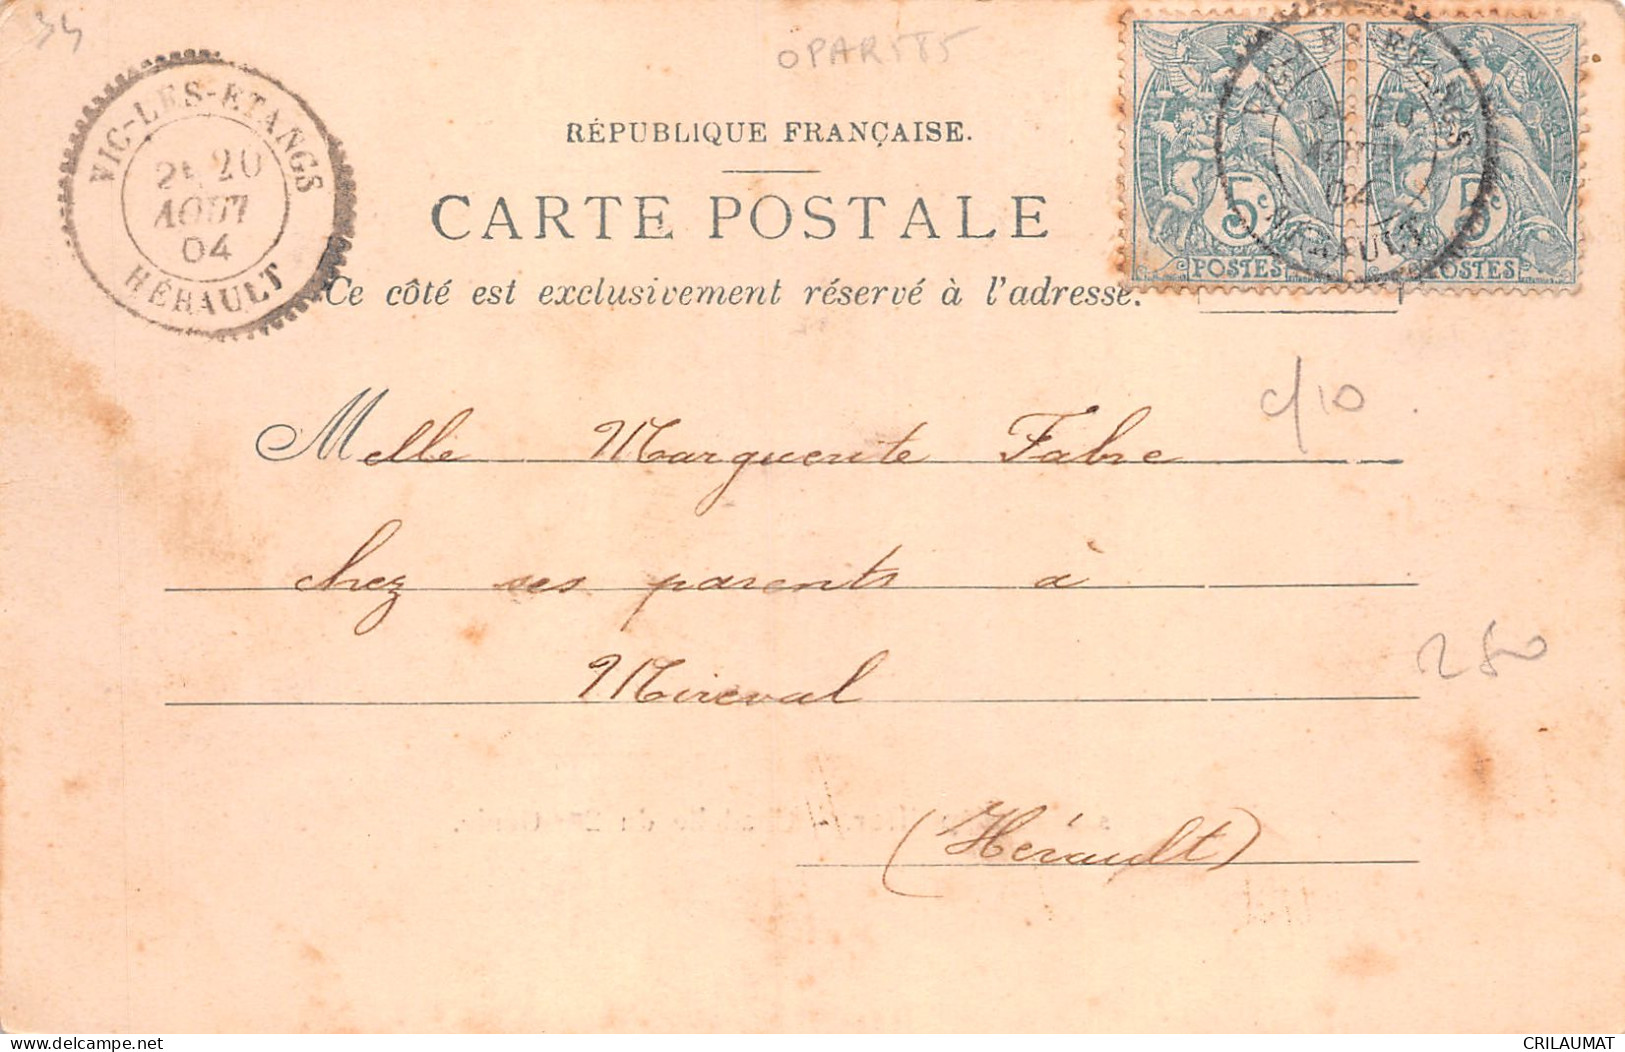 34
OPAR585
VIC-LES-ETANGS
20
AOUT
04
HÉRAULT
RÉPUBLIQUE FRANÇAISE.
CARTE POSTALE
Ce côté est exclusivement réservé à l'adresse.
5c 5c
POSTES POSTES
c/10
Melle Marguerite Fabre
chez ses parents à
Mireval
280
(Hérault)
www.delcampe.net
CRILAUMAT